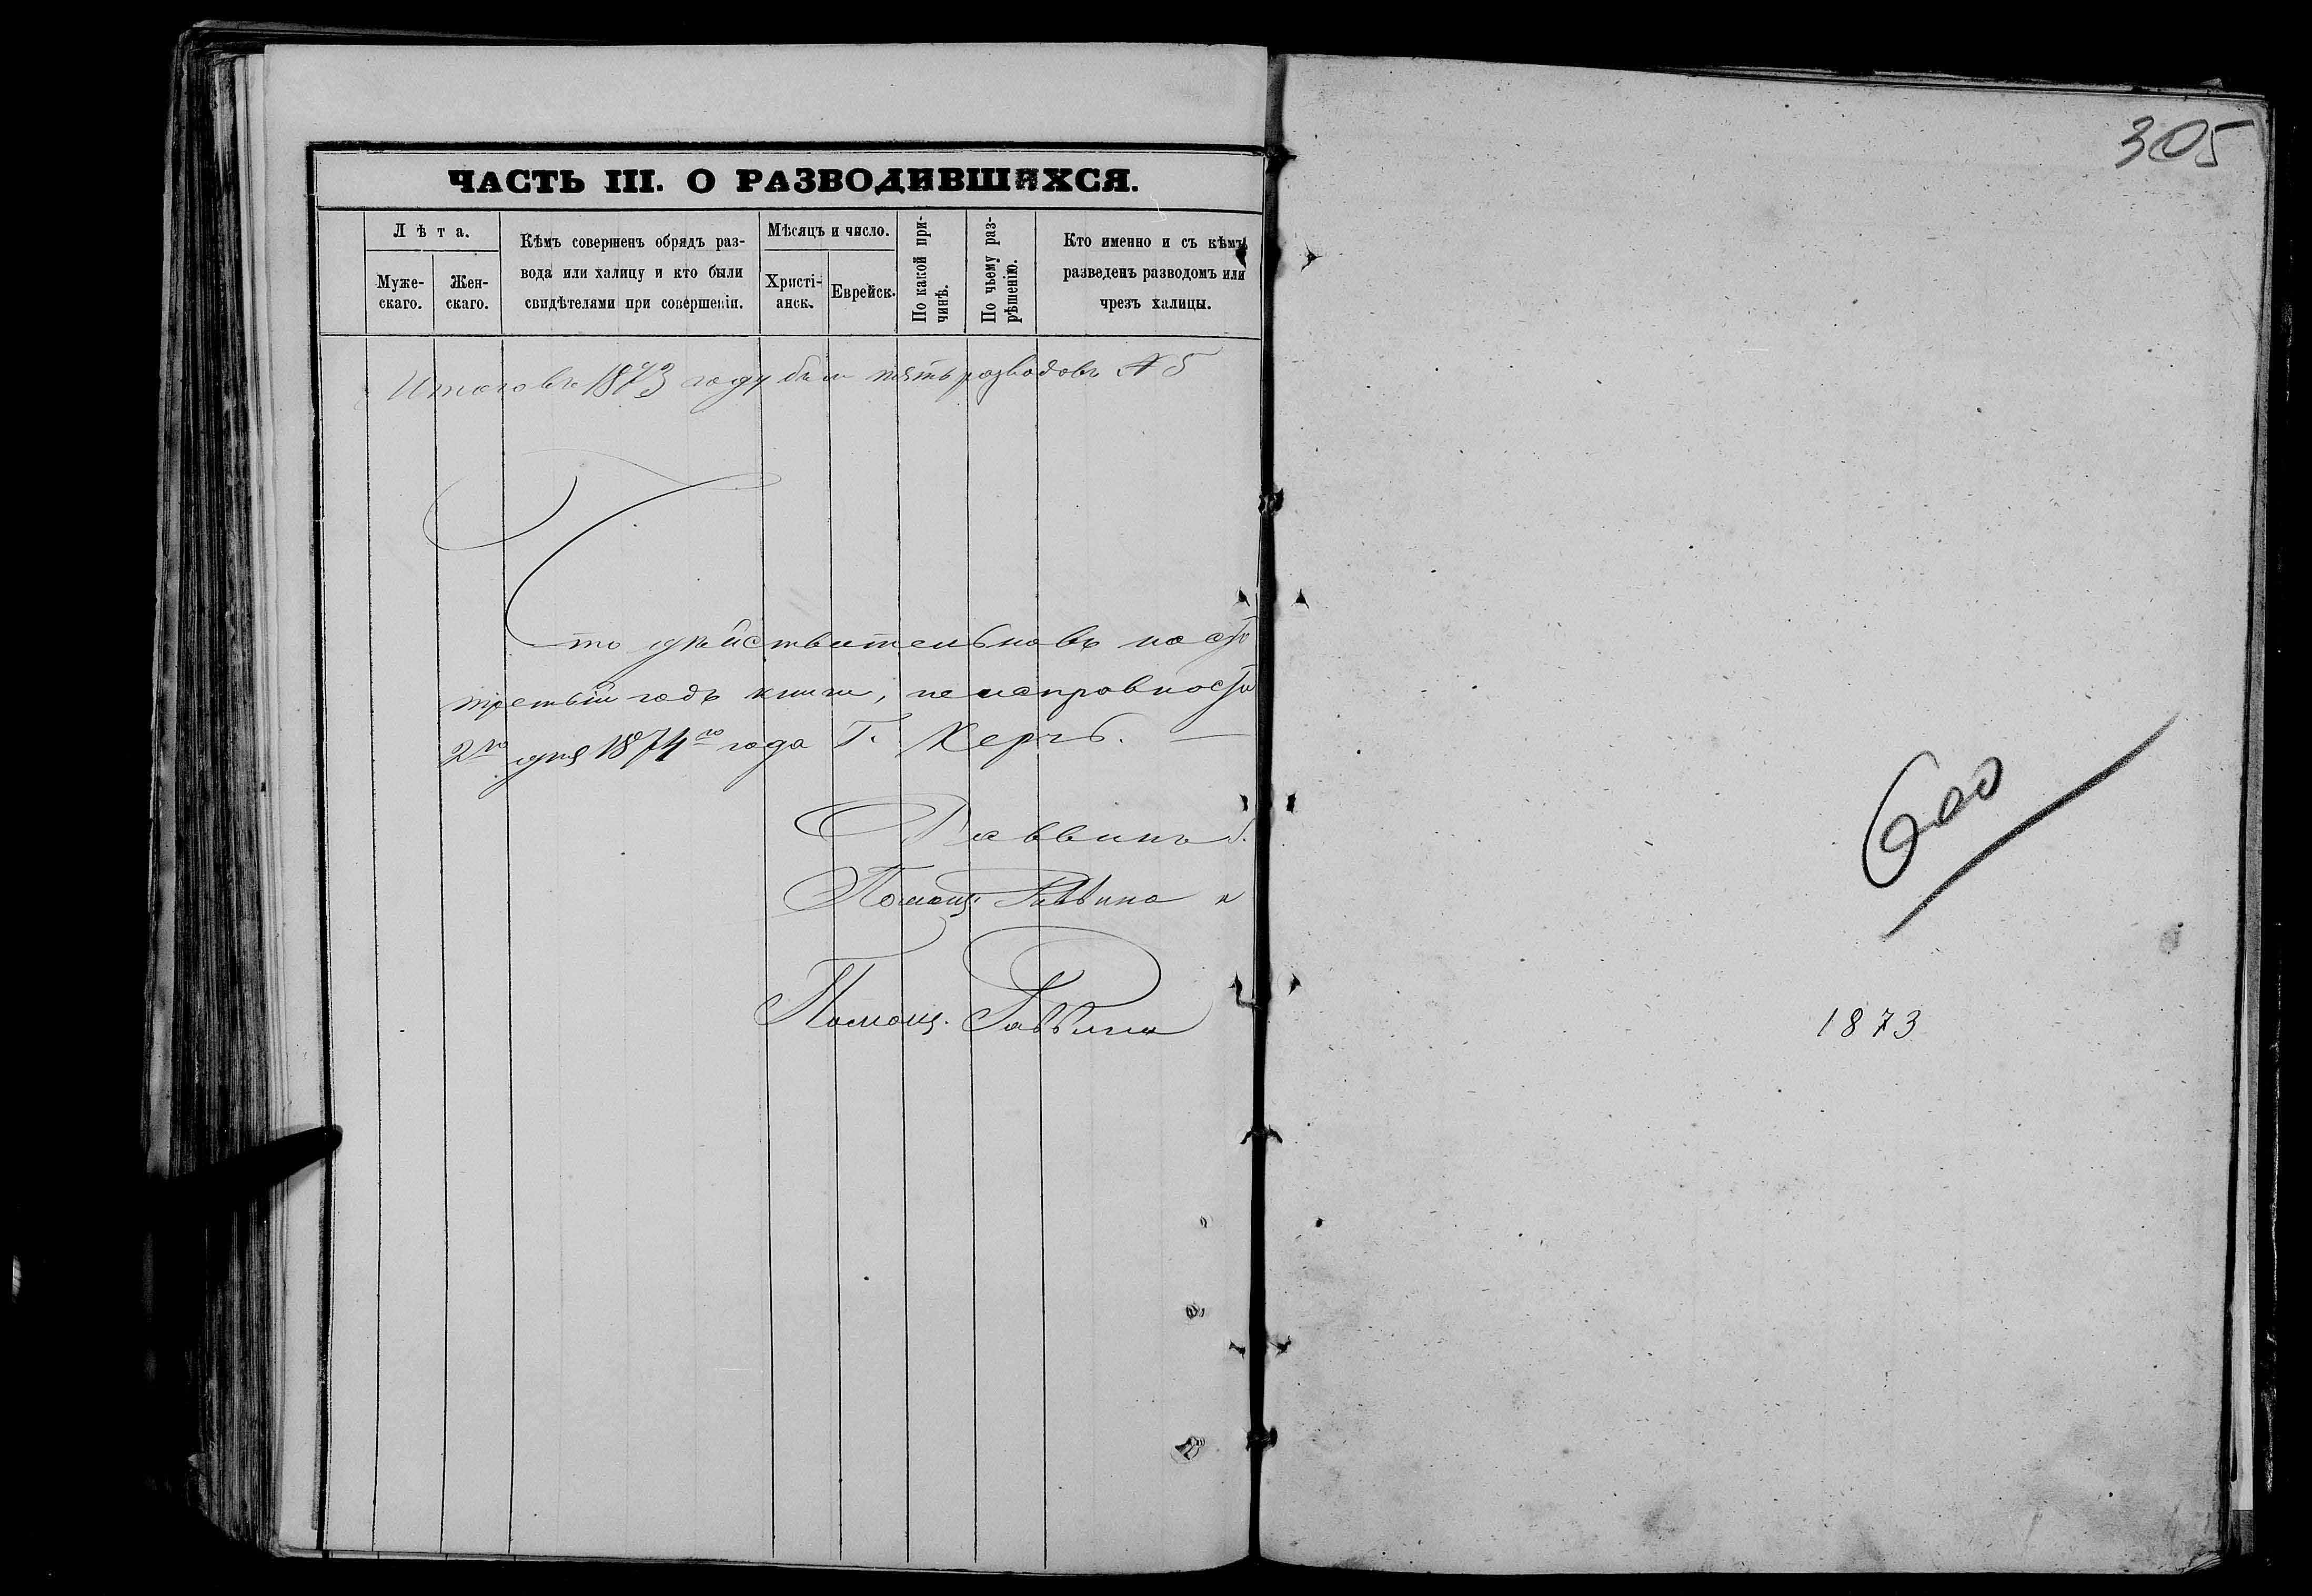 ЧАСТЬ III. О РАЗВОДИВШИХСЯ.
Лѣта.
Муже-
скаго.
Жен-
скаго.
Кѣмъ совершенъ обрядъ раз-
вода или халицу и кто были
свидѣтелями при совершеніи.
Мѣсяцъ и число.
Христі-
анск.
Еврейск.
По какой при-
чинѣ.
По чьему раз-
рѣшенію.
Кто именно и съ кѣмъ
разведенъ разводомъ или
чрезъ халицы.
Итого въ 1873 году были пять разводовъ № 5
Что дѣйствительно въ
третьий годъ книги, неисправности
2го дня 1874го года Г. Керчь.
Раввинъ
Помощ. Раввина
Помощ. Раввина
305
600
1873